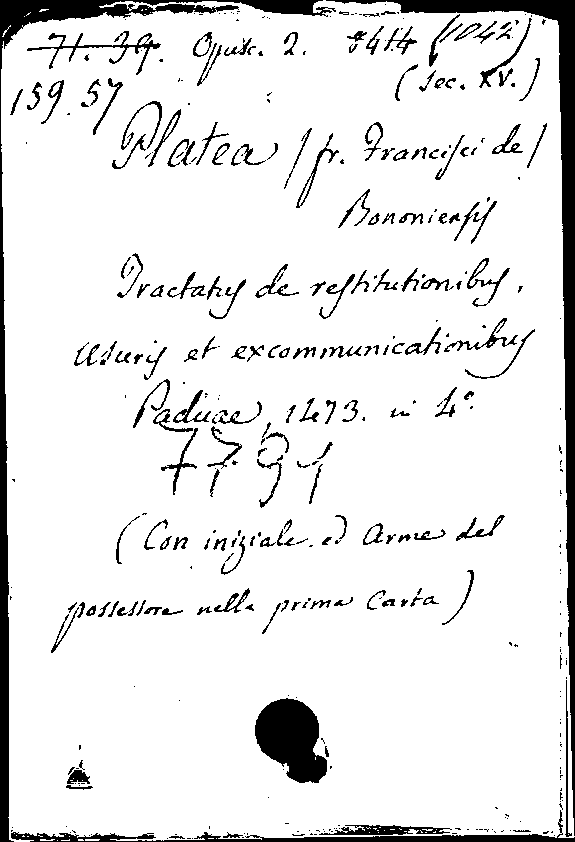 71. 39. Opusc. 2. 8414 (1042)
159.57 (Sec. XV.)
Platea / fr. Francisci de /
Bononiensis
Tractatus de restitutionibus,
Usuris et excommunicationibus
Paduae, 1473. in 4º.
7791
(Con iniziale ed Arme del
possessore nella prima Carta)